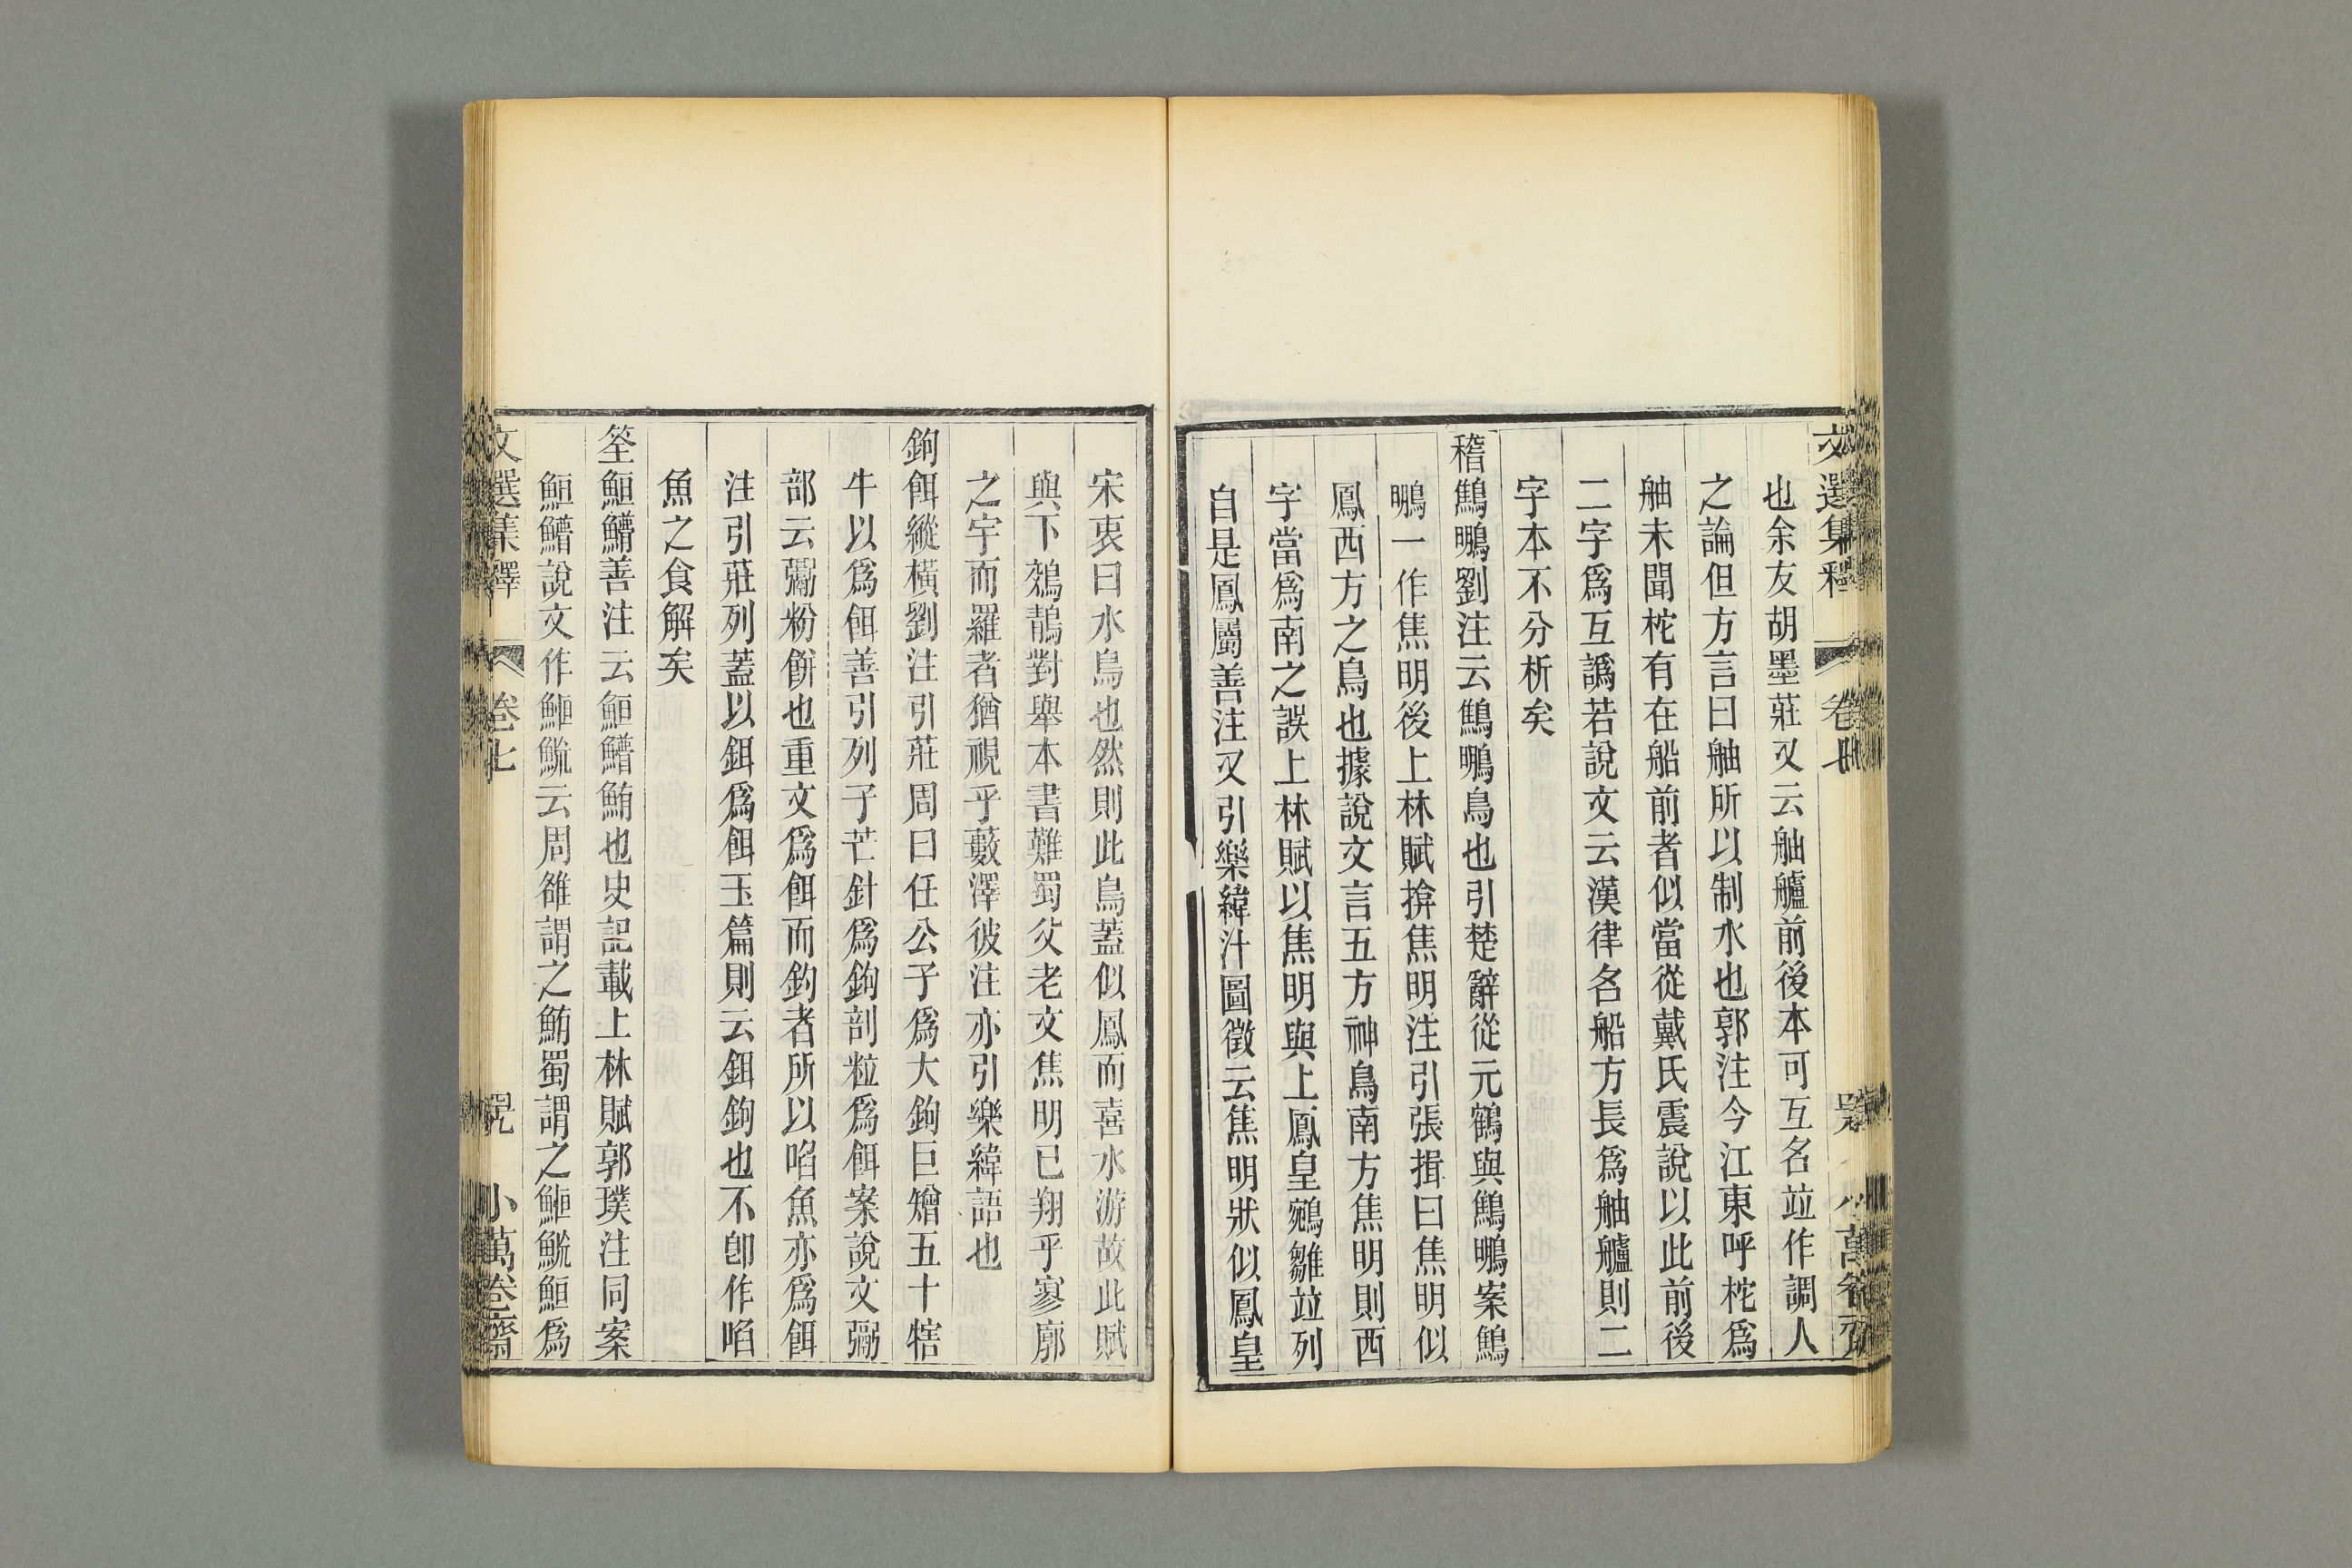 文選集釋 卷七 小萬卷齋
也余友胡墨莊又云舳艫前後本可互名竝作調人
之論但方言曰舳所以制水也郭注今江東呼柁爲
舳未聞柁有在船前者似當從戴氏震說以此前後
二字爲互譌若說文云漢律名船方長爲舳艫則二
字本不分析矣
䅵鷦鵬劉注云鷦鵬鳥也引楚辭從元鶴與鷦鵬案鷦
鵬一作焦明後上林賦揜焦明注引張揖曰焦明似
鳳西方之鳥也據說文言五方神鳥南方焦明則西
字當爲南之誤上林賦以焦明與上鳳皇鵷雛竝列
自是鳳屬善注又引樂緯汁圖徵云焦明狀似鳳皇
宋衷曰水鳥也然則此鳥蓋似鳳而喜水游故此賦
與下鵁鶄對舉本書難蜀父老文焦明已翔乎寥廓
之宇而羅者猶視乎藪澤彼注亦引樂緯語也
鉤餌縱橫劉注引莊周曰任公子爲大鉤巨矰五十犗
牛以爲餌善引列子芒針爲鉤剖粒爲餌案說文䰜
部云䰞粉餅也重文爲餌而釣者所以啗魚亦爲餌
注引莊列蓋以鉺爲餌玉篇則云鉺鉤也不卽作啗
魚之食解矣
筌䱎䲛善注云䱎䲛鮪也史記載上林賦郭璞注同案
䱎䲛說文作䱭䰲云周雒謂之鮪蜀謂之䱭䰲䱎爲
文選集釋 卷七 小萬卷齋